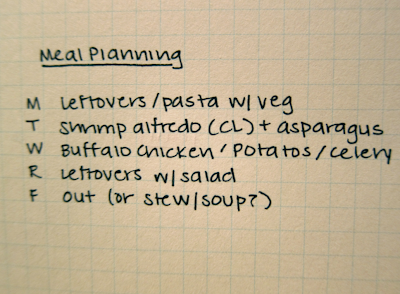 Meal Planning
M leftovers/pasta w/ veg
T shrimp alfredo (CL) + asparagus
W Buffalo chicken / Potatos / celery
R leftovers w/salad
F out (or stew/soup?)